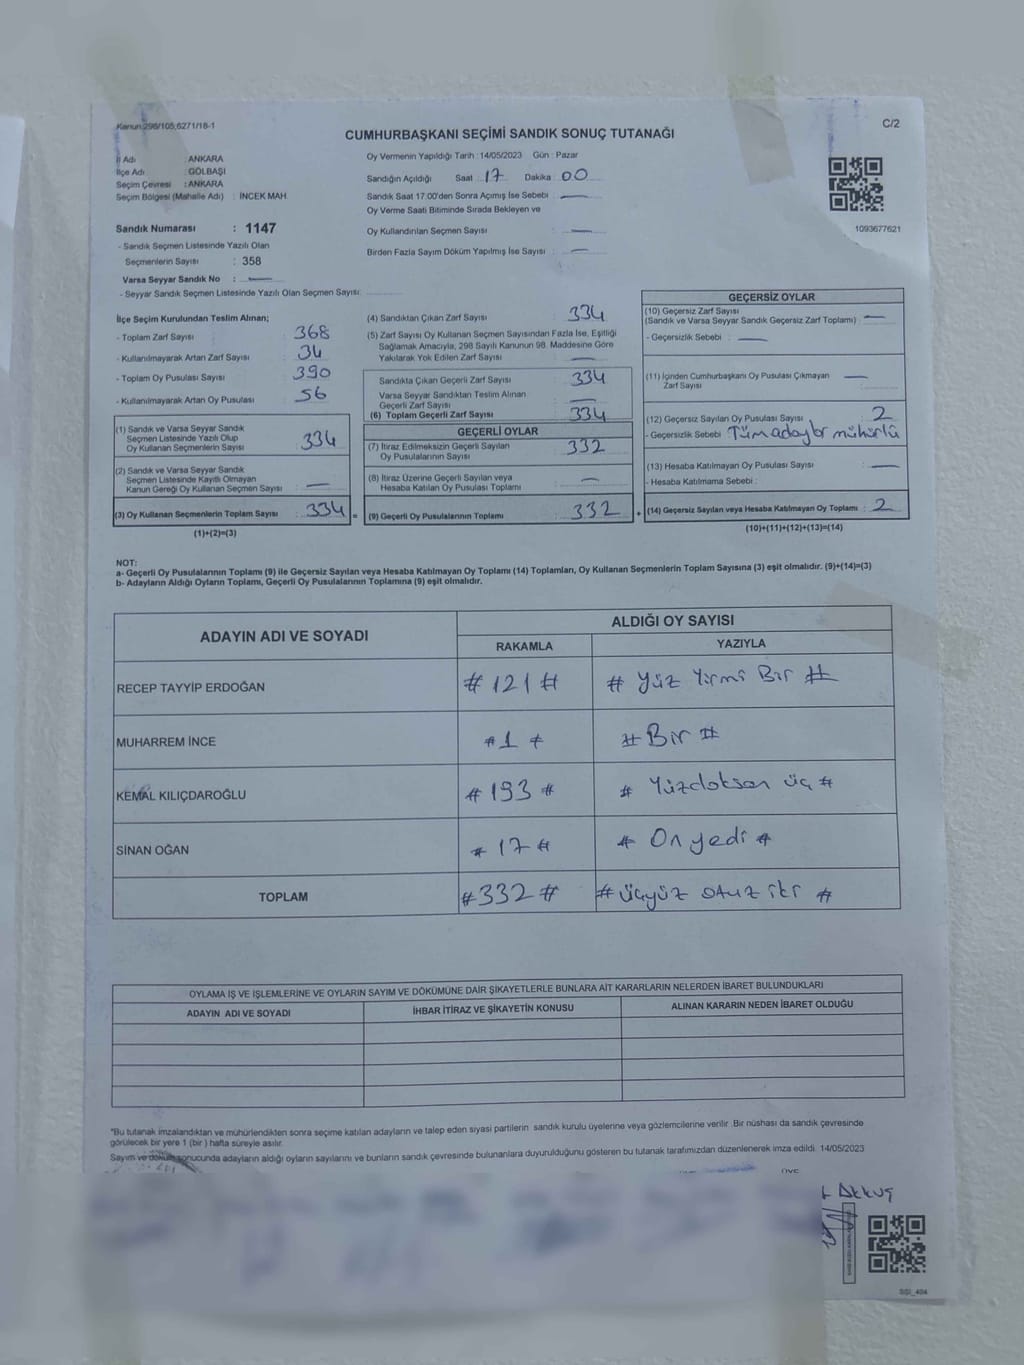 Kanun:298/105,6271/18-1
C/2
CUMHURBAŞKANI SEÇİMİ SANDIK SONUÇ TUTANAĞI
İl Adı : ANKARA
İlçe Adı : GÖLBAŞI
Seçim Çevresi : ANKARA
Seçim Bölgesi (Mahalle Adı) : İNCEK MAH.
Oy Vermenin Yapıldığı Tarih : 14/05/2023 Gün : Pazar
Sandığın Açıldığı Saat 17 Dakika 00
Sandık Saat 17:00'den Sonra Açımış İse Sebebi : —
Oy Verme Saati Bitiminde Sırada Bekleyen ve
Oy Kullandırılan Seçmen Sayısı : —
Birden Fazla Sayım Döküm Yapılmış İse Sayısı : —
1093677621
Sandık Numarası : 1147
- Sandık Seçmen Listesinde Yazılı Olan
Seçmenlerin Sayısı : 358
Varsa Seyyar Sandık No : —
- Seyyar Sandık Seçmen Listesinde Yazılı Olan Seçmen Sayısı:
İlçe Seçim Kurulundan Teslim Alınan;
- Toplam Zarf Sayısı : 368
- Kullanılmayarak Artan Zarf Sayısı : 34
- Toplam Oy Pusulası Sayısı : 390
- Kullanılmayarak Artan Oy Pusulası : 56
(1) Sandık ve Varsa Seyyar Sandık
Seçmen Listesinde Yazılı Olup
Oy Kullanan Seçmenlerin Sayısı : 334
(2) Sandık ve Varsa Seyyar Sandık
Seçmen Listesinde Kayıtlı Olmayan
Kanun Gereği Oy Kullanan Seçmen Sayısı : —
(3) Oy Kullanan Seçmenlerin Toplam Sayısı : 334 =
(1)+(2)=(3)
(4) Sandıktan Çıkan Zarf Sayısı : 334
(5) Zarf Sayısı Oy Kullanan Seçmen Sayısından Fazla İse, Eşitliği
Sağlamak Amacıyla, 298 Sayılı Kanunun 98. Maddesine Göre
Yakılarak Yok Edilen Zarf Sayısı : —
Sandıkta Çıkan Geçerli Zarf Sayısı : 334
Varsa Seyyar Sandıktan Teslim Alınan
Geçerli Zarf Sayısı : —
(6) Toplam Geçerli Zarf Sayısı : 334
GEÇERLİ OYLAR
(7) İtiraz Edilmeksizin Geçerli Sayılan
Oy Pusulalarının Sayısı : 332
(8) İtiraz Üzerine Geçerli Sayılan veya
Hesaba Katılan Oy Pusulası Toplamı : —
(9) Geçerli Oy Pusulalarının Toplamı : 332 +
GEÇERSİZ OYLAR
(10) Geçersiz Zarf Sayısı
(Sandık ve Varsa Seyyar Sandık Geçersiz Zarf Toplamı) : —
- Geçersizlik Sebebi : —
(11) İçinden Cumhurbaşkanı Oy Pusulası Çıkmayan
Zarf Sayısı : —
(12) Geçersiz Sayılan Oy Pusulası Sayısı : 2
- Geçersizlik Sebebi : Tüm adaylar mühürlü
(13) Hesaba Katılmayan Oy Pusulası Sayısı : —
- Hesaba Katılmama Sebebi :
(14) Geçersiz Sayılan veya Hesaba Katılmayan Oy Toplamı : 2
(10)+(11)+(12)+(13)=(14)
NOT:
a- Geçerli Oy Pusulalarının Toplamı (9) ile Geçersiz Sayılan veya Hesaba Katılmayan Oy Toplamı (14) Toplamları, Oy Kullanan Seçmenlerin Toplam Sayısına (3) eşit olmalıdır. (9)+(14)=(3)
b- Adayların Aldığı Oyların Toplamı, Geçerli Oy Pusulalarının Toplamına (9) eşit olmalıdır.
ADAYIN ADI VE SOYADI ALDIĞI OY SAYISI
RAKAMLA YAZIYLA
RECEP TAYYİP ERDOĞAN # 121 # # Yüz Yirmi Bir #
MUHARREM İNCE # 1 # # Bir #
KEMAL KILIÇDAROĞLU # 193 # # Yüzdoksan üç #
SİNAN OĞAN # 17 # # On yedi #
TOPLAM # 332 # # üçyüz otuz iki #
OYLAMA İŞ VE İŞLEMLERİNE VE OYLARIN SAYIM VE DÖKÜMÜNE DAİR ŞİKAYETLERLE BUNLARA AİT KARARLARIN NELERDEN İBARET BULUNDUKLARI
ADAYIN ADI VE SOYADI İHBAR İTİRAZ VE ŞİKAYETİN KONUSU ALINAN KARARIN NEDEN İBARET OLDUĞU
*Bu tutanak imzalandıktan ve mühürlendikten sonra seçime katılan adayların ve talep eden siyasi partilerin sandık kurulu üyelerine veya gözlemcilerine verilir. Bir nüshası da sandık çevresinde
görülecek bir yere 1 (bir ) hafta süreyle asılır.
Sayım ve döküm sonucunda adayların aldığı oyların sayılarını ve bunların sandık çevresinde bulunanlara duyurulduğunu gösteren bu tutanak tarafımızdan düzenlenerek imza edildi. 14/05/2023
AKKUŞ